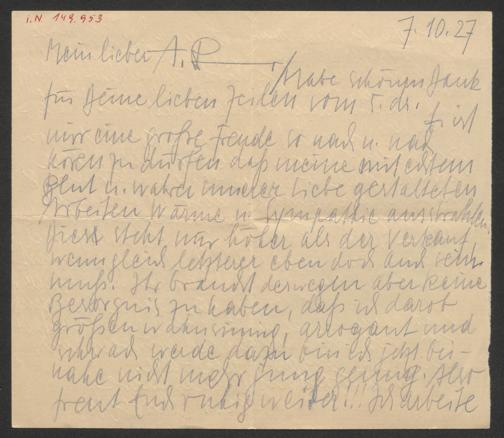 I.N 149.953
7.10.27
Mein lieber A. R
Habe schönen Dank
für Deine lieben Zeilen vom 5. ds. Es ist
mir eine große Freude so nach u. nach
hören zu dürfen daß meine mit echtem
Blut u. wahrer innerer Liebe gestalteten
Arbeiten Wärme u. Sympathie ausstrahlen.
Dies steht mir höher als der Verkauf,
wenngleich letzterer eben doch auch sein
muß. Ihr braucht deswegen aber keine
Besorgnis zu haben, daß ich darob
größenwahnsinnig, arrogant und
schwach werde dazu bin ich jetzt bei-
nahe nicht mehr jung genug. Also
freut Euch ruhig weiter!!! Ich arbeite